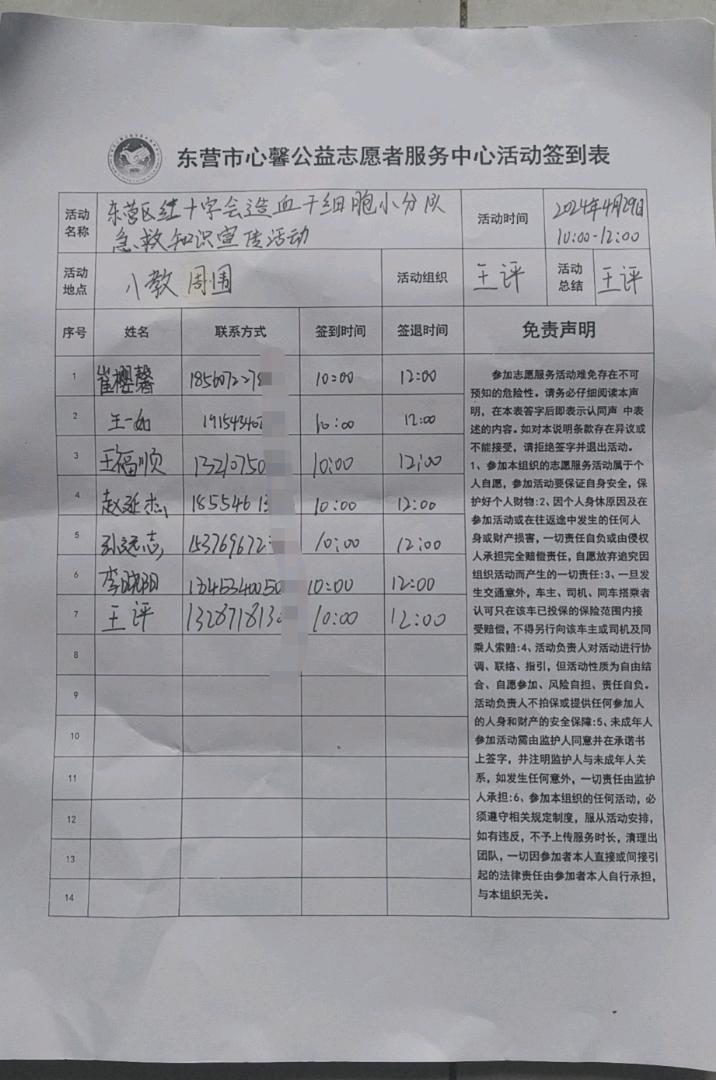 东营市心馨公益志愿者服务中心活动签到表
活动名称 东营区红十字会造血干细胞小分队
急救知识宣传活动
活动时间 2024年4月29日
10:00-12:00
活动地点 八教周围 活动组织 王评 活动总结 王评
序号 姓名 联系方式 签到时间 签退时间 免责声明
1 崔樱馨 185607227 10:00 12:00
2 王一 191543407 10:00 12:00
3 王福顺 13210750 10:00 12:00
4 赵延杰 1855461 10:00 12:00
5 孙远志 153769672 10:00 12:00
6 李晓阳 10:00 12:00
7 王评 132871813 10:00 12:00
8
9
10
11
12
13
14
参加志愿服务活动难免存在不可
预知的危险性。请务必仔细阅读本声
明，在本表签字后即表示认同声 中表
述的内容。如对本说明条款存在异议或
不能接受，请拒绝签字并退出活动。
1、参加本组织的志愿服务活动属于个
人自愿，参加活动要保证自身安全，保
护好个人财物:2、因个人身体原因及在
参加活动或在往返途中发生的任何人
身或财产损害，一切责任自负或由侵权
人承担完全赔偿责任，自愿放弃追究因
组织活动而产生的一切责任:3、一旦发
生交通意外，车主、司机、同车搭乘者
认可只在该车已投保的保险范围内接
受赔偿，不得另行向该车主或司机及同
乘人索赔:4、活动负责人对活动进行协
调、联络、指引，但活动性质为自由结
合、自愿参加、风险自担、责任自负。
活动负责人不担保或提供任何参加人
的人身和财产的安全保障:5、未成年人
参加活动需由监护人同意并在承诺书
上签字，并注明监护人与未成年人关
系，如发生任何意外，一切责任由监护
人承担:6、参加本组织的任何活动，必
须遵守相关规定制度，服从活动安排，
如有违反，不予上传服务时长，清理出
团队，一切因参加者本人直接或间接引
起的法律责任由参加者本人自行承担，
与本组织无关。